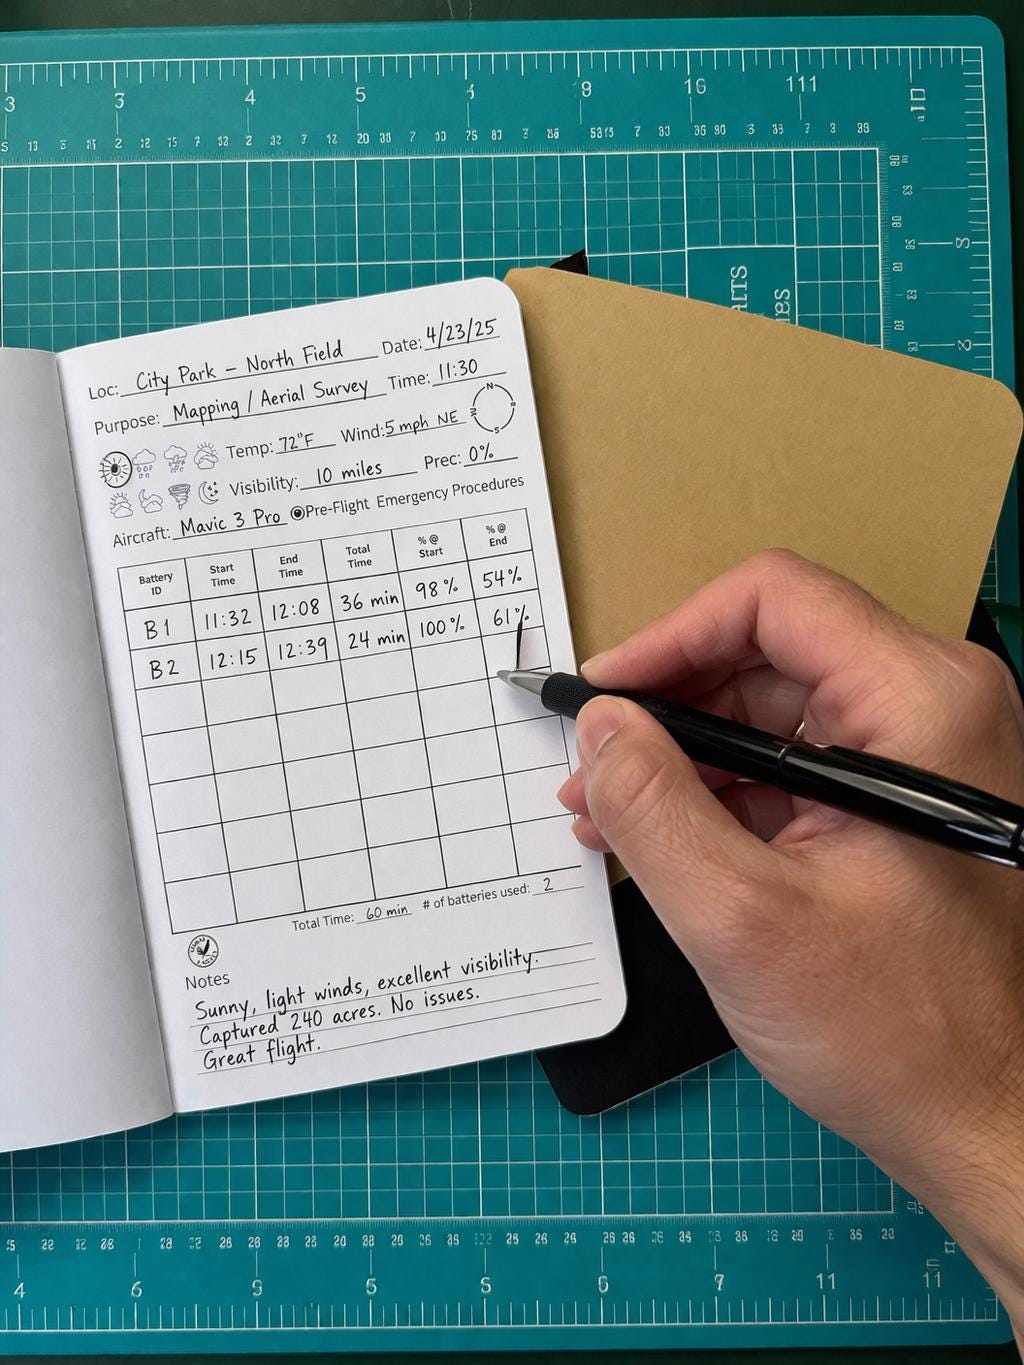 Loc: City Park – North Field Date: 4/23/25
Purpose: Mapping / Aerial Survey Time: 11:30
Temp: 72°F Wind: 5 mph NE
N
S
Visibility: 10 miles Prec: 0%
Aircraft: Mavic 3 Pro Pre-Flight Emergency Procedures
Battery ID Start Time End Time Total Time % @ Start % @ End
B1 11:32 12:08 36 min 98% 54%
B2 12:15 12:39 24 min 100% 61%
Total Time: 60 min # of batteries used: 2
Notes
Sunny, light winds, excellent visibility.
Captured 240 acres. No issues.
Great flight.